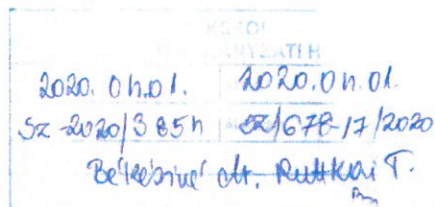 2020. 04.01. 2020.04.01.
SZ-2020/3854 SZ/678-17/2020
Békésiné dr. Ruttkai T.